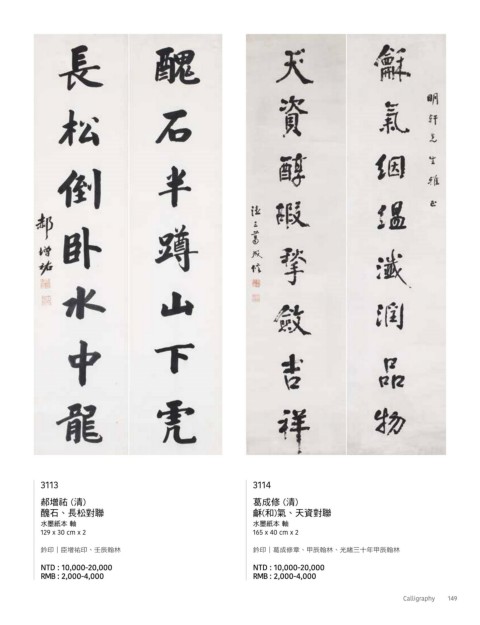 醜石半蹲山下虎
長松倒卧水中龍
郝增祐
龢氣絪縕瀸潤品物
天資醇嘏擎斂吉祥
明軒先生雅正
葛成修
3113
郝增祐 (清)
醜石、長松對聯
水墨紙本 軸
129 x 30 cm x 2
鈐印｜臣增祐印、壬辰翰林
NTD : 10,000-20,000
RMB : 2,000-4,000
3114
葛成修 (清)
龢(和)氣、天資對聯
水墨紙本 軸
165 x 40 cm x 2
鈐印｜葛成修章、甲辰翰林、光緒三十年甲辰翰林
NTD : 10,000-20,000
RMB : 2,000-4,000
Calligraphy 149